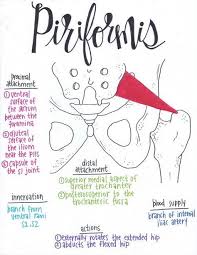 Piriformis
proximal
attachment
① ventral
surface of
the sacrum
between the
foramina
② gluteal
surface of
the ilium
near the PIIS
③ capsule of
the SI joint
distal
attachment
① superior medial aspect of
greater trochanter
② posterosuperior to
the trochanteric fossa
innervation
branch from
ventral rami
S1, S2
blood supply
branch of internal
iliac artery
actions
① externally rotates the extended hip
② abducts the flexed hip